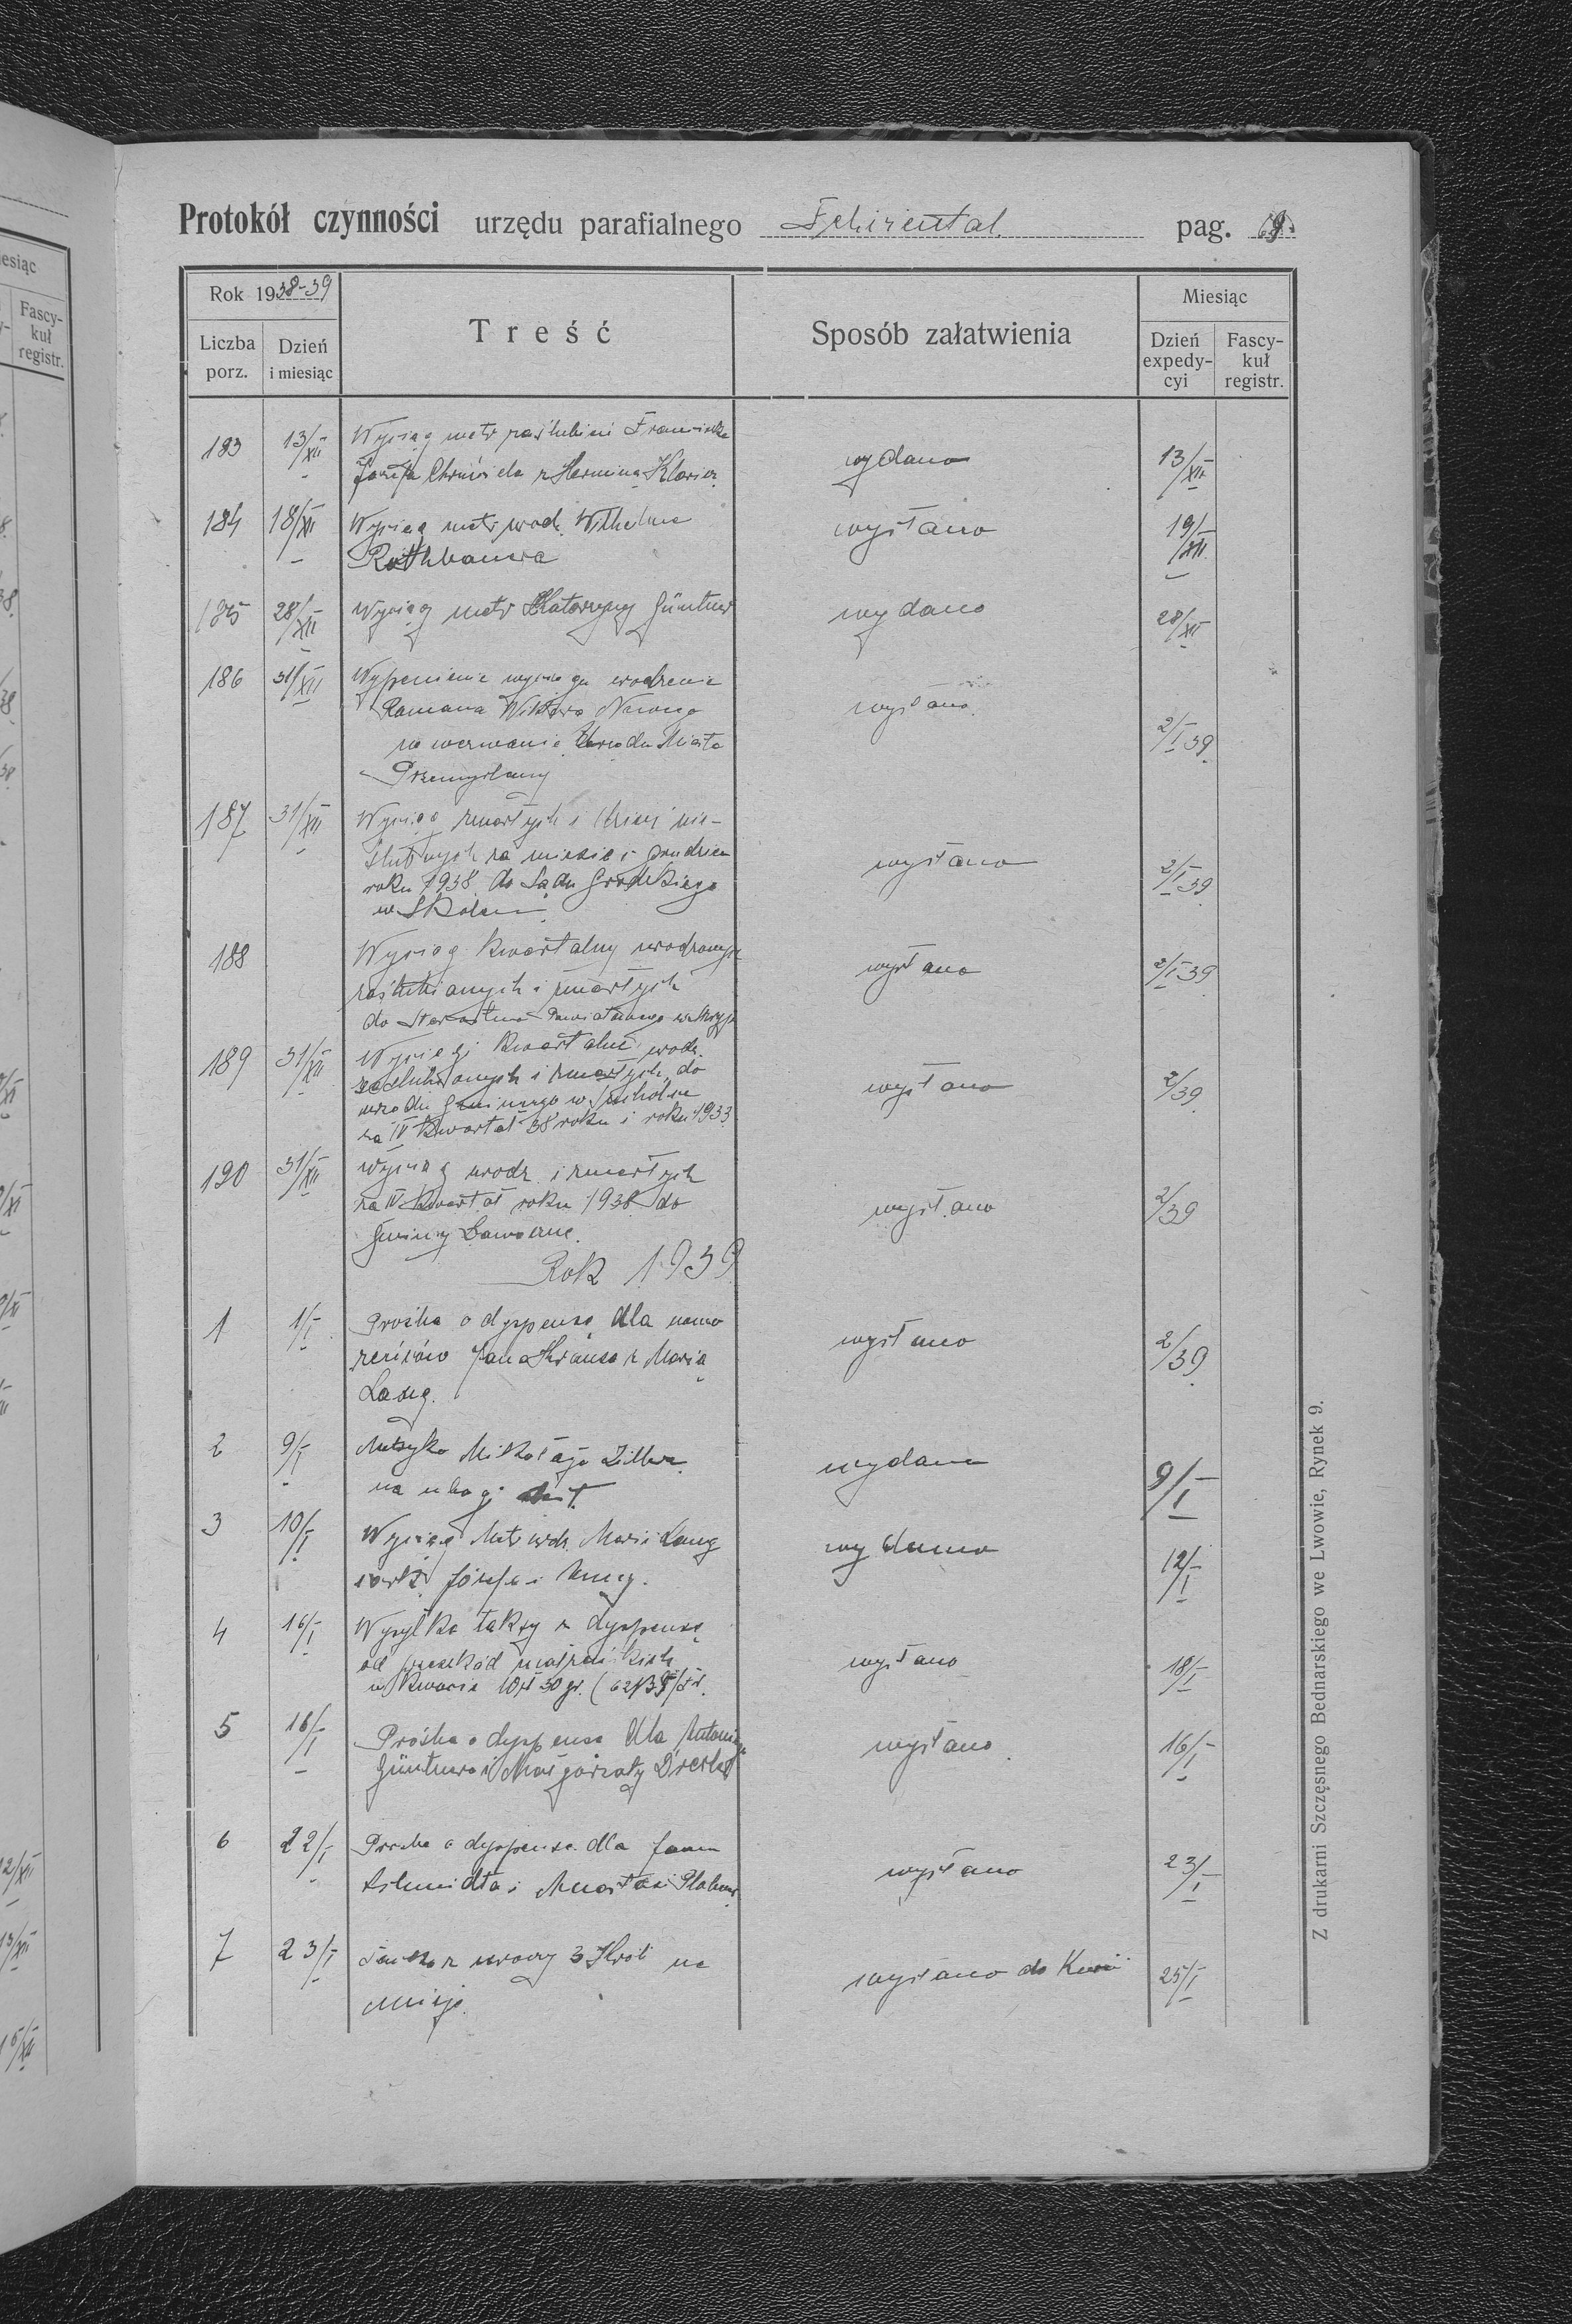 Protokół czynności urzędu parafialnego pag. 69
Rok 1938-39
Liczba porz.
Dzień i miesiąc
Treść
Sposób załatwienia
Miesiąc
Dzień expedycyi
Fascykuł registr.
183 13/XII Wyciąg metr zaślubin Franciszka
Józefa z Herminą wydano 13/XII
184 18/XII Wyciąg metr urodz. Wilhelma
Rothbauera wysłano 19/XII
185 28/XII Wyciąg metr Katarzyny Günther wydano 28/XII
186 31/XII wyciągu urodzenia
Romana Wiktora
na wezwanie Urzędu Miasta
Przemyślany wysłano 2/I 39
187 31/XII Wyciąg zmarłych i dzieci nie-
ślubnych za miesiąc grudzień
roku 1938 do Sądu Grodzkiego
w Skolem wysłano 2/I 39
188 Wyciąg kwartalny urodzonych
zaślubianych i zmarłych
do Starostwa Powiatowego w Stryju wysłano 2/I 39
189 31/XII Wyciągi kwartalne urodz.
zaślubionych i zmarłych do
urzędu gminnego w
za IV kwartał 38 roku i roku 1933 wysłano 2/39
190 31/XII Wyciąg urodz. i zmarłych
za IV kwartał roku 1938 do
Gminy Ławoczne. wysłano 2/39
Rok 1939
1 1/I Prośba o dyspensę dla narze
czonych Jana Krausa z Marią
Lang. wysłano 2/39
2 9/I Metryka Mikołaja
wydano 9/I
3 10/I Wyciąg Metr urdz. Marii Lang
córki Józefa i Anny. wydano 12/I
4 16/I Wysyłka taksy z dyspensę
od przeszkód małżeńskich
w kwocie 10 zł 30 gr. wysłano 18/I
5 16/I Prośba o dyspensę dla Antoniego
Günthera i Małgorzaty wysłano 16/I
6 22/I Prośba o dyspensa dla Jana
Schmidta i wysłano 23/I
7 23/I 3 Króli na
misje. wysłano do Kurii 25/I
Z drukarni Szczęsnego Bednarskiego we Lwowie, Rynek 9.